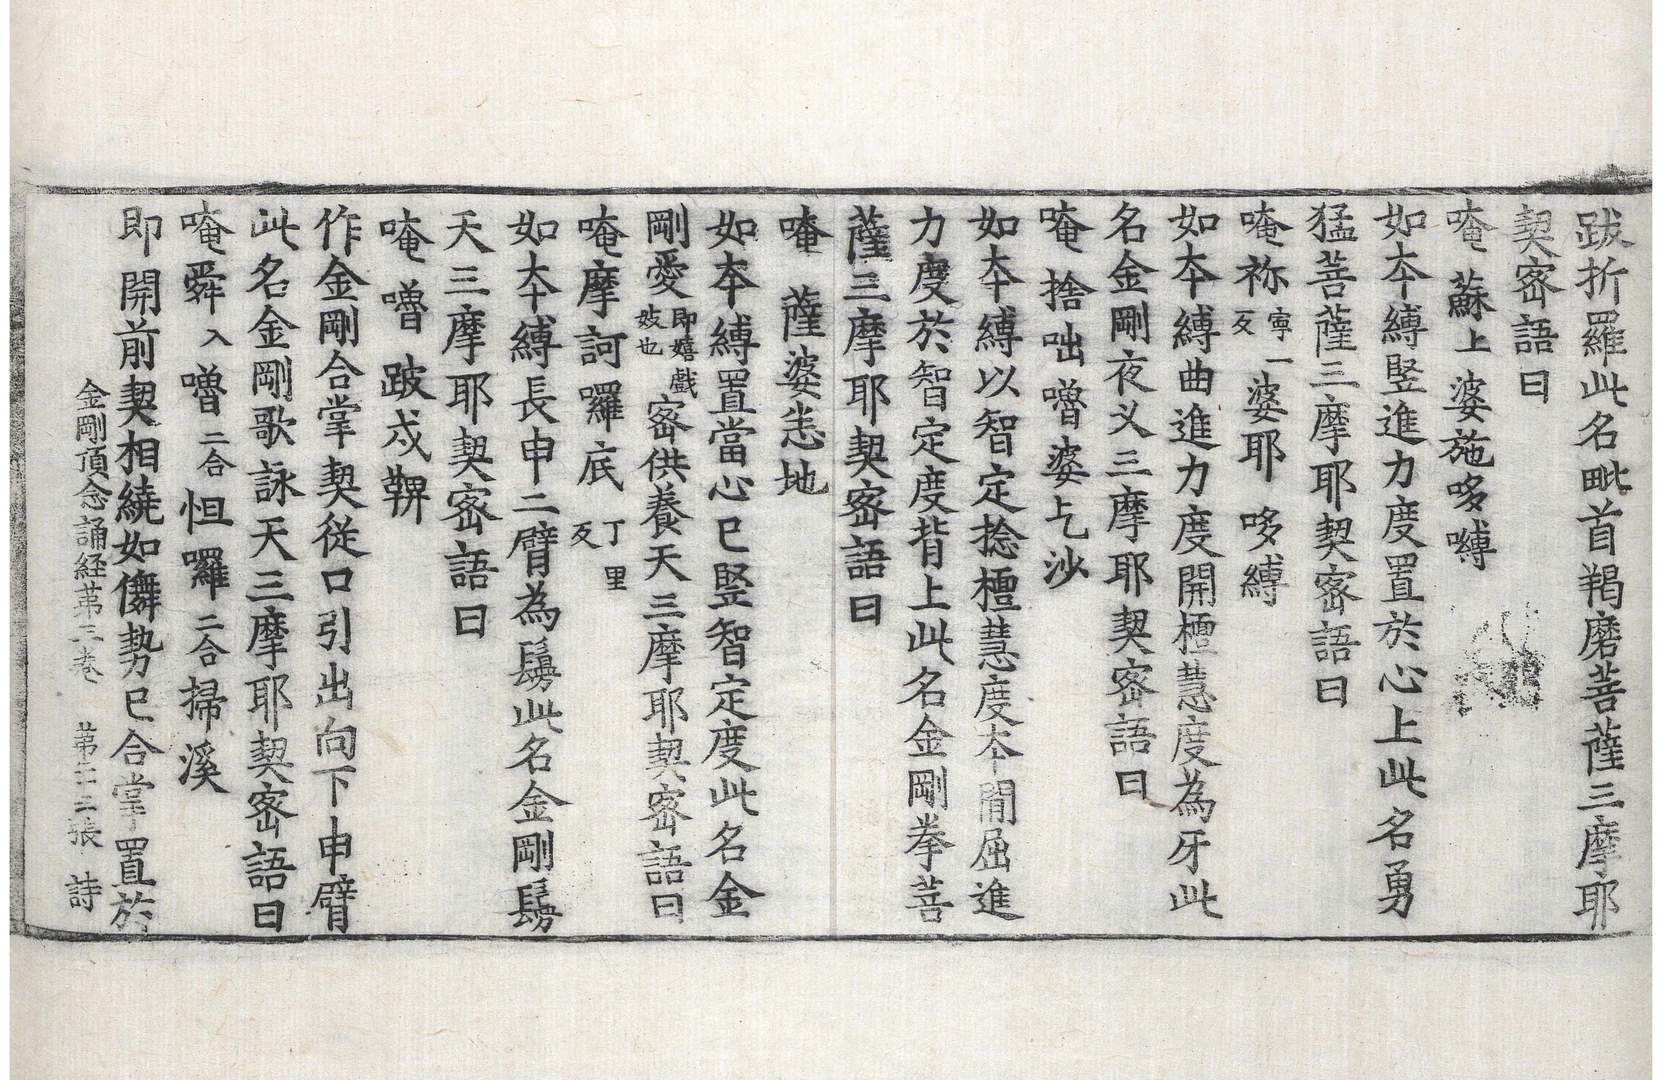 跋折羅此名毗首羯磨菩薩三摩耶
契密語曰
唵 蘇上婆施哆嚩
如本縛竪進力度置於心上此名勇
猛菩薩三摩耶契密語曰
唵祢寧一反婆耶 哆縛
如本縛曲進力度開檀慧度為牙此
名金剛夜义三摩耶契密語曰
唵 捨咄嚕婆乞沙
如本縛以智定捻檀慧度本間屈進
力度於智定度背上此名金剛拳菩
薩三摩耶契密語曰
唵 薩婆恙地
如本縛置當心已竪智定度此名金
剛愛即嬉戲妓也密供養天三摩耶契密語曰
唵摩訶囉底丁里反
如本縛長申二臂為鬘此名金剛鬘
天三摩耶契密語曰
唵嚕跛戍鞞
作金剛合掌契従口引出向下申臂
此名金剛歌詠天三摩耶契密語曰
唵舜入嚕二合怛囉二合掃溪
即開前契相繞如儛勢已合掌置於
金剛頂念誦経苐三巻 苐二十三張 詩